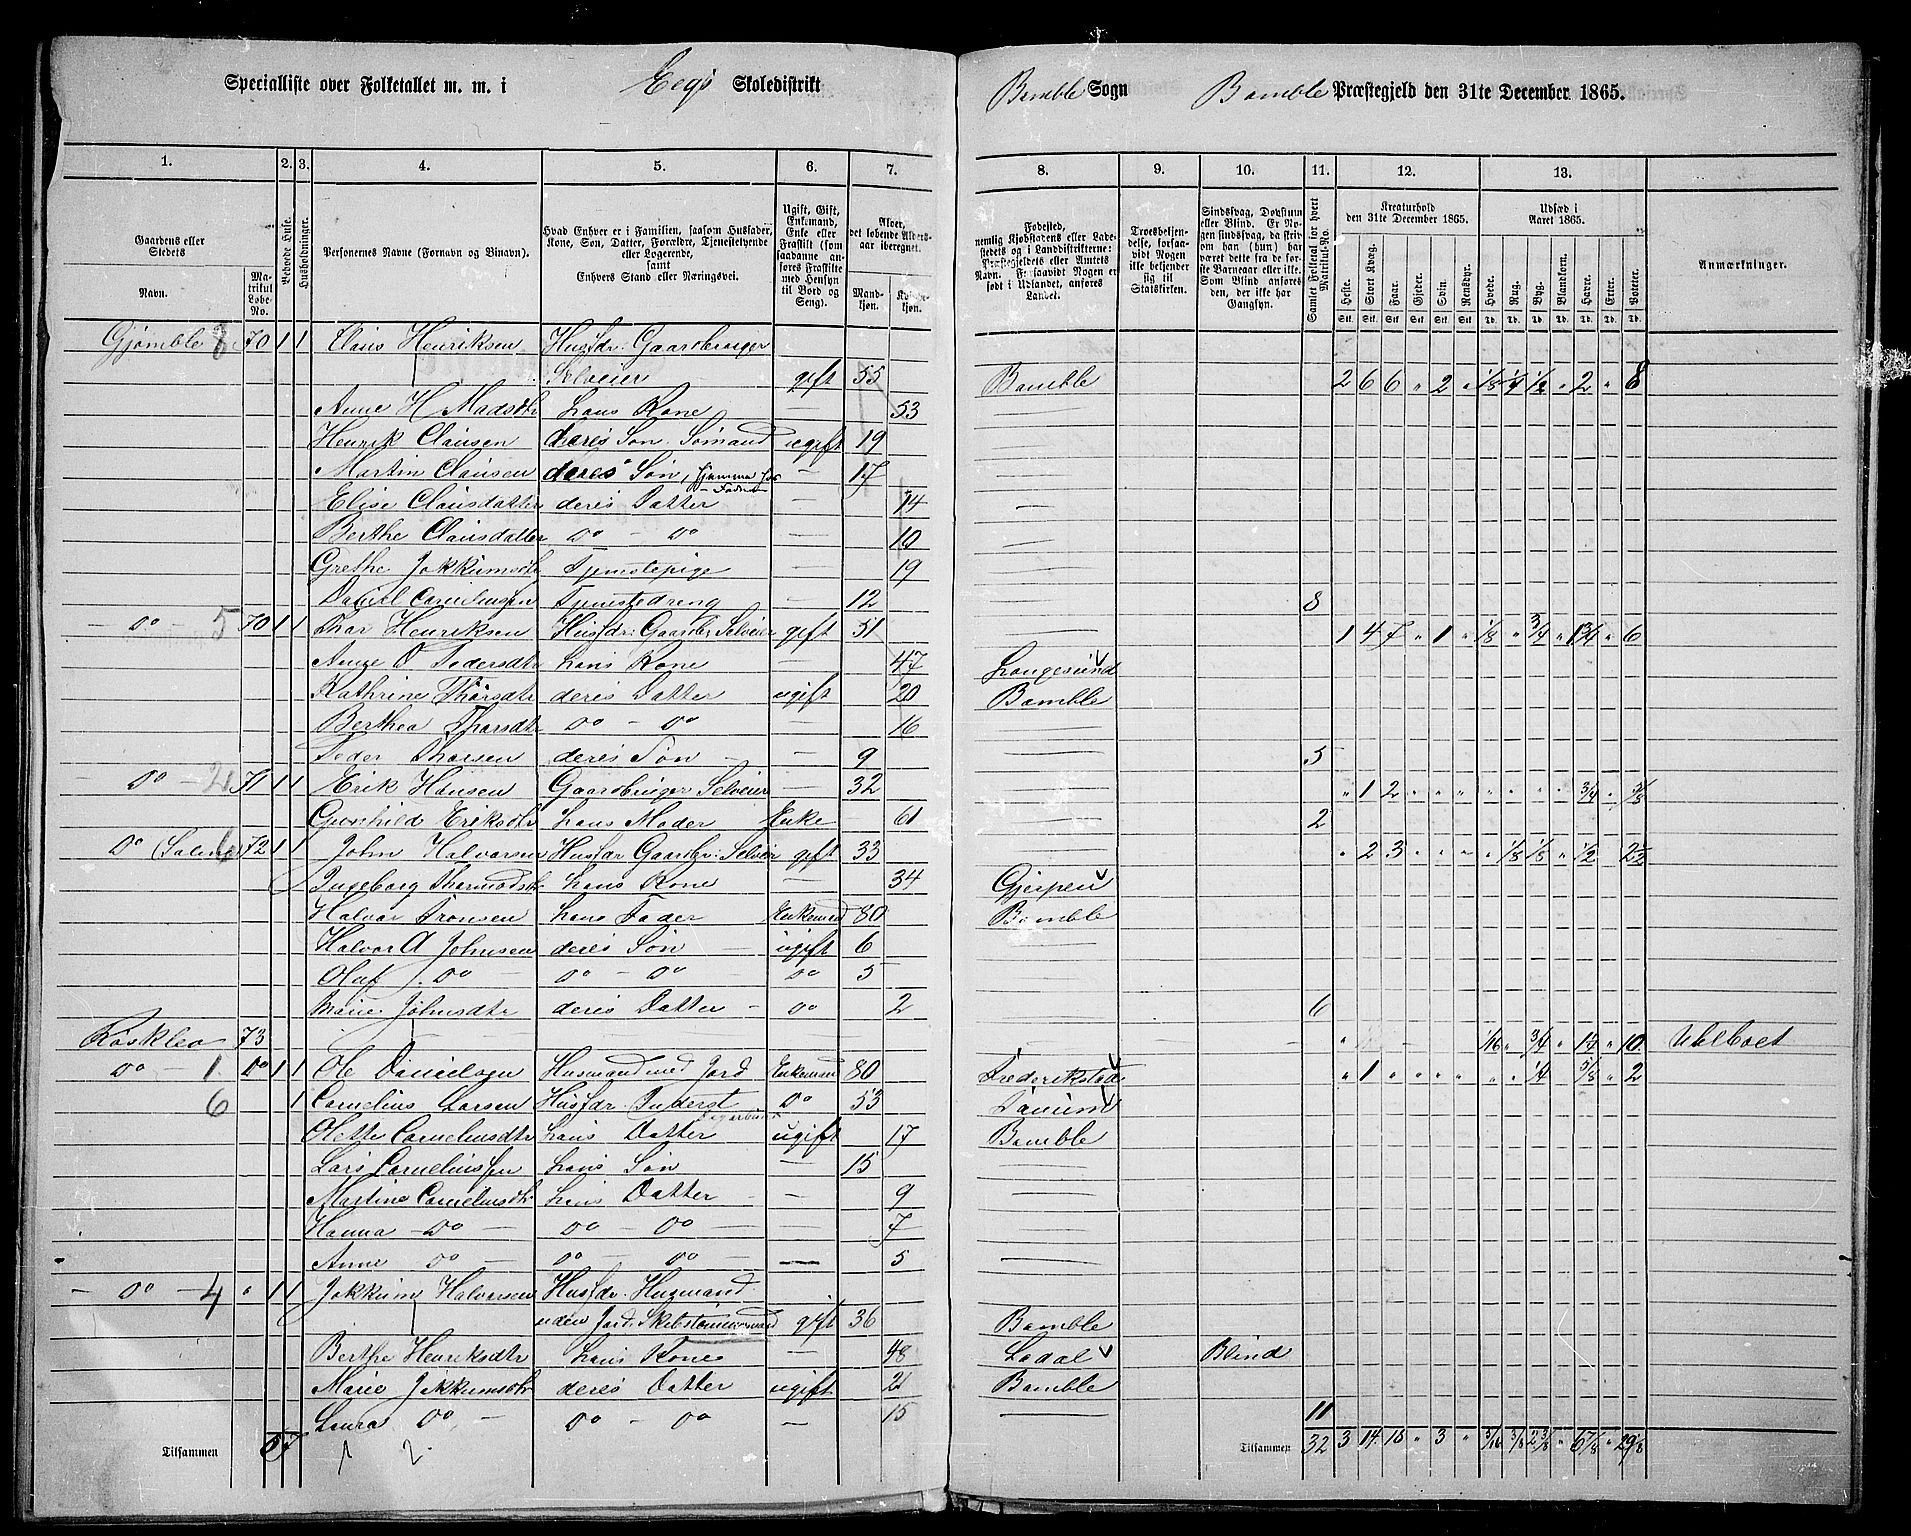 Specialliste over Folketallet m. m. i Eegs Skoledistrikt Bamble Sogn Bamble Præstegjeld den 31te December 1865.
1. 2. 3. 4. 5. 6. 7. 8. 9. 10. 11. 12. 13.
Gaardens eller Stedets Navn. Matrikul Løbe-No. Beboede Huse. Husholdninger. Personernes Navne (Fornavn og Binavn). Hvad Enhver er i Familien, saasom Husfader, Kone, Søn, Datter, Forældre, Tjenestetyende eller Logerende, samt Enhvers Stand eller Næringsvei. Ugift, Gift, Enkemand, Enke eller Fraskilt (som saadanne anføres Fraskilte med Hensyn til Bord og Seng). Alder, det løbende Alders-aar iberegnet. Mandkjøn. Kvindekjøn.
Fødested, nemlig Kjøbstadens eller Ladestedets og i Landdistrikterne: Præstegjeldets eller Amtets Navn. Er saavidt Nogen er født i Udlandet, anføres Landet. Troesbekjendelse, forsaavidt Nogen ikke bekjender sig til Statskirken. Sindssvag, Døvstum eller Blind. Er Nogen sindssvag, da skrives om han (hun) har været dette fra de første Barneaar eller ikke. Som Blind anføres den, der ikke har Gangsyn. Samlet Folketal for hvert Matrikul-No. Kreaturhold den 31te December 1865. Udsæd i Aaret 1865. Anmærkninger.
Heste. Stort Kvæg. Faar. Gjeder. Svin. Rensdyr. Hvede. Rug. Byg. Blandkorn. Havre. Erter. Poteter.
Stk. Stk. Stk. Stk. Stk. Stk. Td. Td. Td. Td. Td. Td. Td.
Gjømble 8 70 1 1 Claus Henriksen Husfdr. Gaardbruger
Selveier gift 55 Bamble 2 6 6 " 2 " 1/8 1/4 1/2 " 2 " 8
Anne H Madsdtr hans Kone — 53 —
Henrik Clausen deres Søn. Sømand ugift 19 —
Martin Clausen deres Søn, hjemme hos Fader — 17 —
Elise Clausdatter deres Datter — 14 —
Berthe Clausdatter Do — Do — 10 —
Grethe Jokkumsdtr Tjenestepige — 19 —
Daniel Corneliussen Tjenestedreng — 12 — 8
— Do — 5 70 1 1 Thor Henriksen Husfdr: Gaardbr. Selveier gift 51 — 1 4 7 " 1 " 1/8 " 3/4 " 1 3/4 " 6
Aase O Pedersdtr hans Kone — 47 Langesund
Kathrine Thorsdtr deres Datter ugift 20 Bamble
Berthea Thorsdtr Do — Do — 16 —
Peder Thorsen deres Søn — 9 — 5
— Do — 2 71 1 1 Erik Hansen Gaardbruger Selveier — 32 — " 1 2 " " " " " " " 3/4 "
Gunhild Eriksdtr hans Moder Enke 61 — 2
Do 6 72 1 1 John Halvorsen Husfdr Gaardbr: Selveier gift 33 — " 2 3 " " " " 1/8 1/8 " 1/2 " 2 1/2
Ingeborg Thormodsdtr hans Kone — 34 Gjerpen
Halvor Tronsen hans Fader Enkemd 80 Bamble
Halvor A Johnsen deres Søn — ugift 6 —
Oluf Do Do — Do Do 5 —
Marie Johnsdtr deres Datter — Do 2 — 6
Røsklev 73 — " — 1/16 " 3/4 " 1 1/4 " 10 Ubeboet
Do — 1 Do 1 1 Ole Danielsen Husmand med Jord Enkemand 80 Frederikstad " 1 " " " " " " 1/4 " 5/8 " 2
6 1 Cornelius Larsen Husfdr. Inderst Do 53 Tanum
Olette Corneliusdtr hans Datter ugift 17 Bamble
Lars Corneliussen hans Søn — 15 —
Martine Corneliusdtr hans Datter — 9 —
Hanna Do — Do — Do — 7 —
Anne Do — Do — Do — 5 —
— Do — 4 " 1 1 Jokkum Halvorsen Husfdr. Husmand
uden Jord. Skibstømmermand gift 36 Bamble
Berthe Henriksdtr hans Kone — 48 Ladal Blind
Marie Jokkumsdtr deres Datter ugift 21 Bamble
Laura Do — Do — Do — 15 — 11
Tilsammen 5 7 1 2. Tilsammen 32 3 14. 18 " 3 " 3/16 3/8 2 3/8 " 6 7/8 " 29 1/8